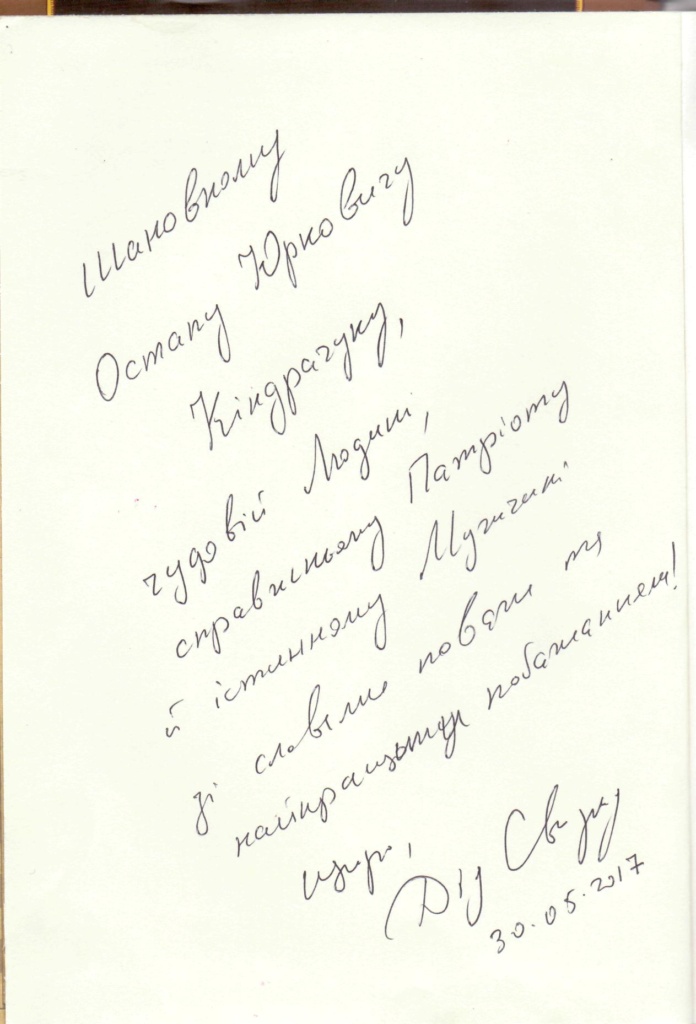 Шановному
Остапу Юрковичу
Кіндрачуку,
чудовій Людині,
справжньому Патріоту
й істинному Мужчині
зі словами поваги та
найкращими побажаннями!
щиро,
Дід Свирид
30.05.2017